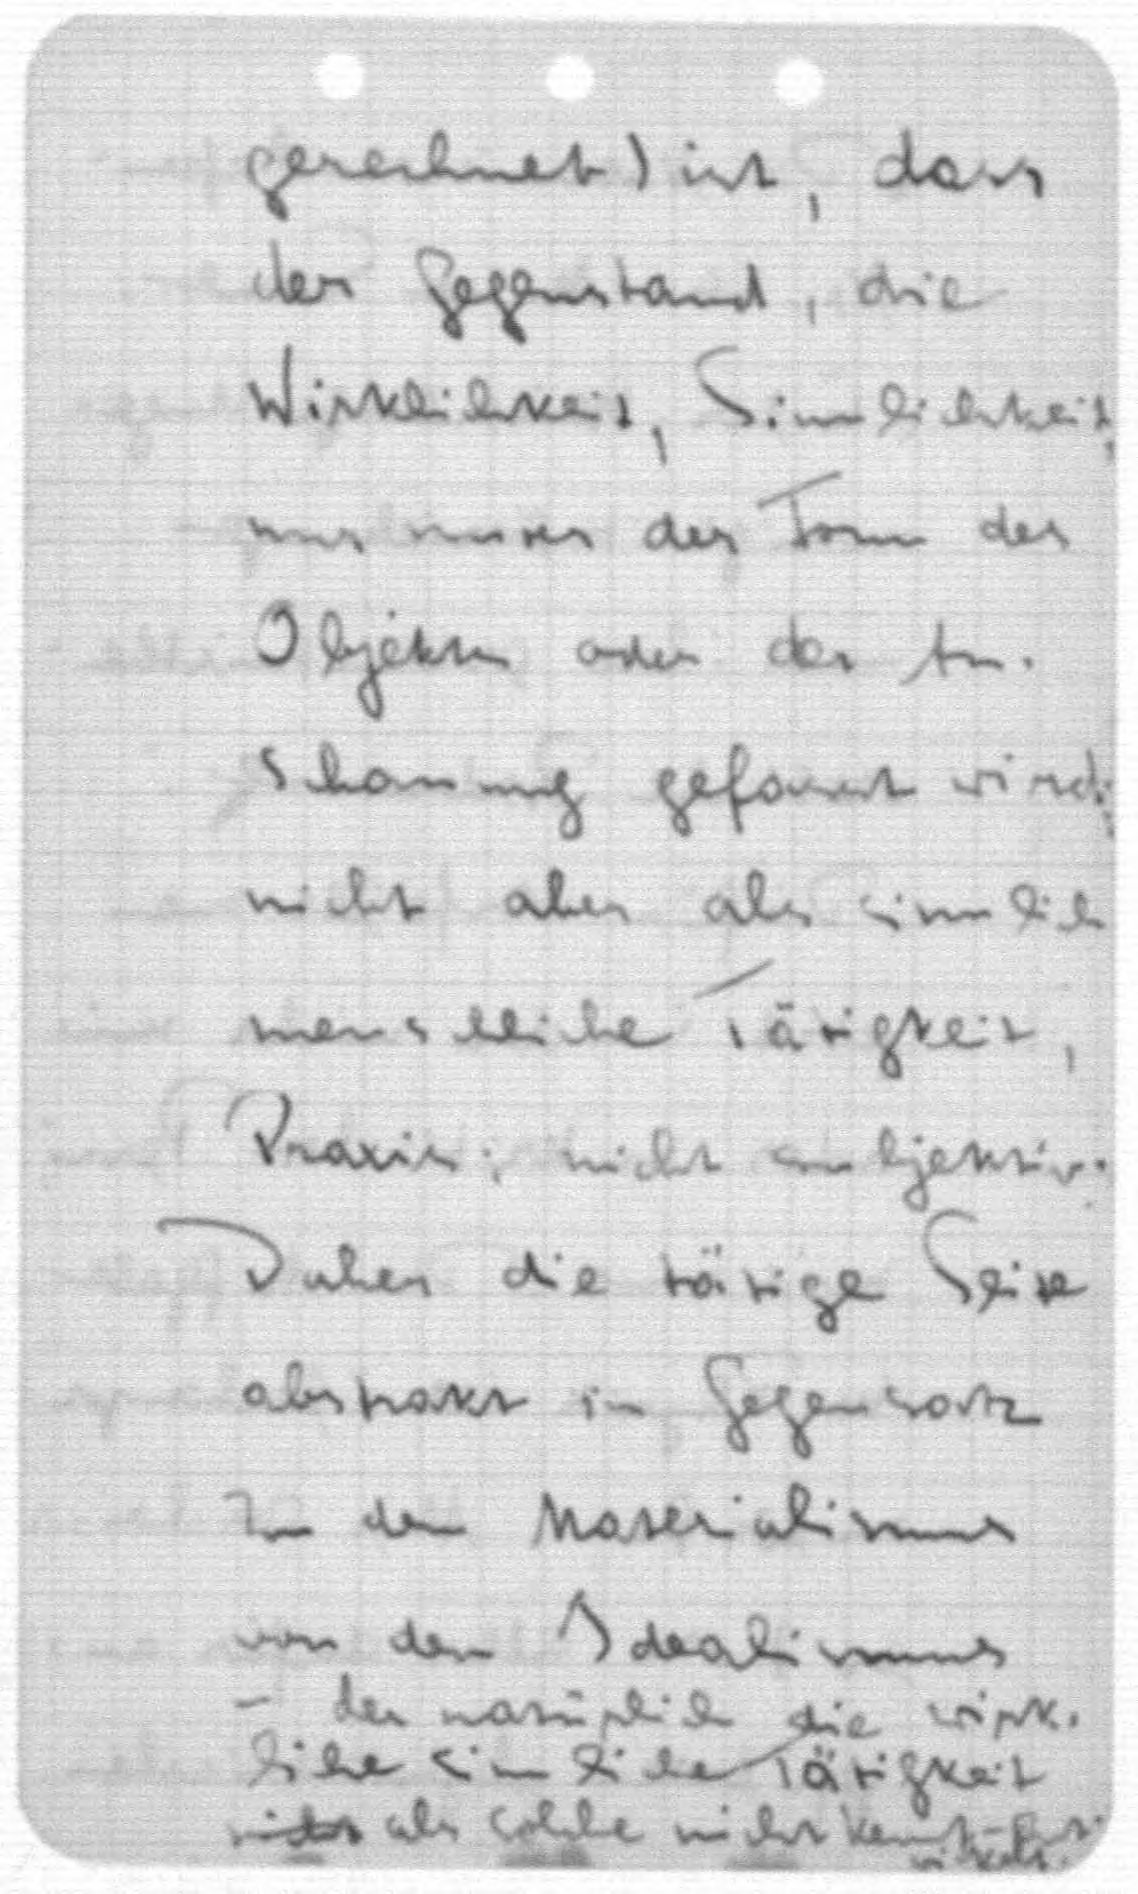 gerechnet) ist, dass
der Gegenstand, die
Wirklichkeit, Sinnlichkeit,
nur unter der Form des
Objekts oder der An-
schauung gefasst wird;
nicht aber als sinnlich
menschliche Tätigkeit,
Praxis; nicht subjektiv.
Daher die tätige Seite
abstrakt im Gegensatz
zu dem Materialismus
von dem Idealismus
- der natürlich die wirk-
liche sinnliche Tätigkeit
als solche nicht kennt -